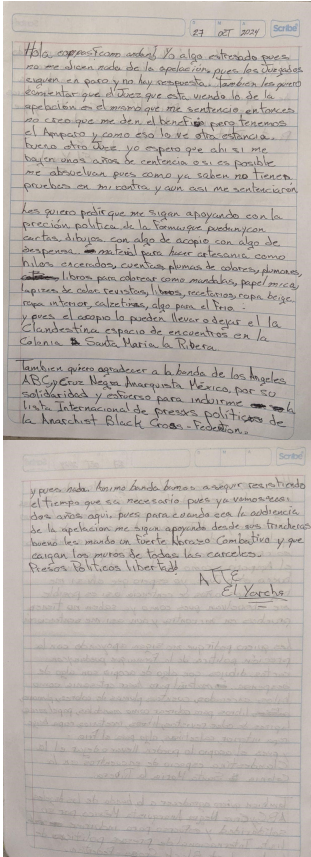 27 OCT 2024 Scribe
Hola compas! como andan! Yo algo estresado pues
no me dicen nada de la apelación, pues los Juzgados
siguen en paro y no hay respuesta. Tambien les quiero
comentar que el Juez que esta viendo lo de la
apelación es el mismo que me sentencio, entonces
no creo que me den el benefi pero tenemos
el Amparo y como eso lo ve otra estancia.
bueno otro Juez. yo espero que ahi si me
bajen unos años de centencia o si es posible
me absuelvan pues como ya saben no tienen
pruebas en mi contra y aun asi me sentenciaron
Les quiero pedir que me sigan apoyando con la
preción politica de la forma que puedan, con
cartas, dibujos, con algo de acopio con algo de
despensa, material para hacer artesania como
hilos encerados, cuentas, plumas de colores, plumones,
libros para colorear como mandalas, papel
lapices de color, revistas, libros, recetarios, ropa beige
ropa interior, calzetines, algo para el frio.
y pues el acopio lo pueden llevar o dejar el la
Clandestina espacio de encuentros en la
Colonia Santa Maria la Ribera
Tambien quiero agradecer a la banda de los Angeles
ABC, y Cruz Negra Anarquista México, por su
solidaridad y esfuerzo para incluirme a la
lista Internacional de presos politicos de
la Anarchist Black Cross-Federation.
Scribe
y pues nada. Animo banda bamos a seguir resistiendo
el tiempo que sa necesario pues ya vamos
dos años aqui. pues para cuando sea la audiencia
de la apelacion me sigan apoyando desde sus trincheras
bueno les mando un fuerte Abrazo Combativo y que
caigan los muros de todas las carceles.
Presos Politicos libertad!
ATTE
El Yorch